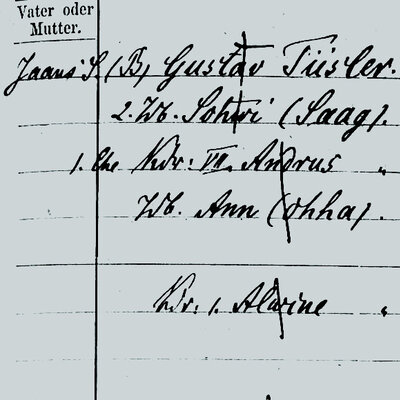 Vater oder
Mutter.
Jaani S. (B) Gustav Tiisler.
2. Wb. Sohwi (Saag).
1. Ehe Kdr: VII. Andrus "
Wb. Ann (Ohha).
Kdr. 1. Alwine "